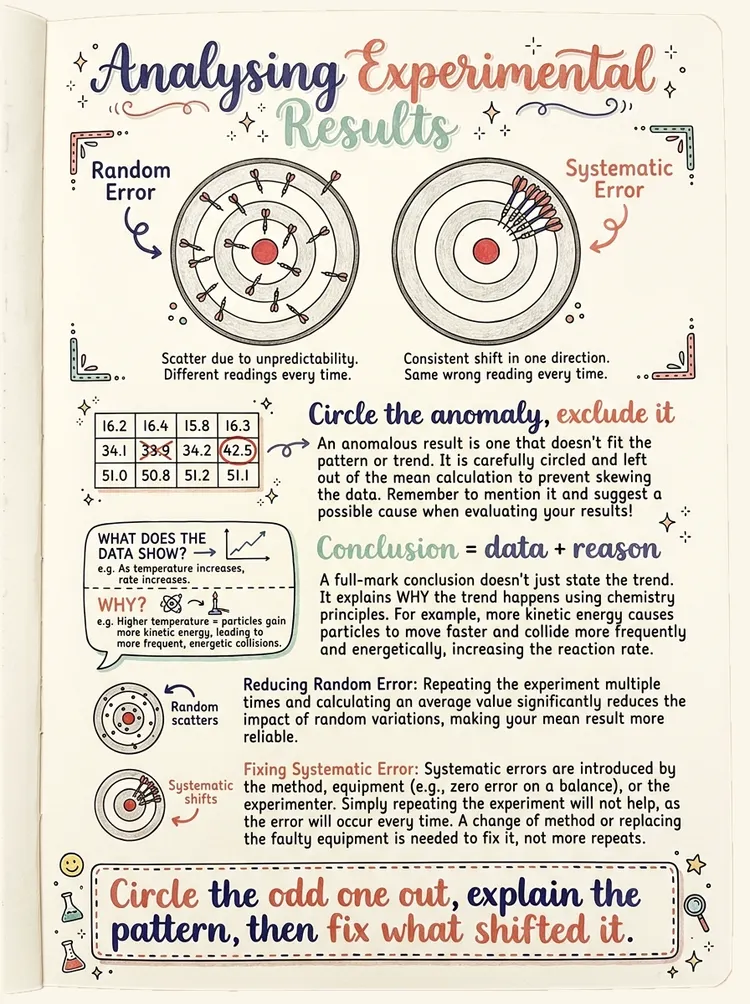 Analysing Experimental
Results
Random
Error
Systematic
Error
Scatter due to unpredictability.
Different readings every time.
Consistent shift in one direction.
Same wrong reading every time.
16.2 16.4 15.8 16.3
34.1 33.9 34.2 42.5
51.0 50.8 51.2 51.1
Circle the anomaly, exclude it
An anomalous result is one that doesn't fit the
pattern or trend. It is carefully circled and left
out of the mean calculation to prevent skewing
the data. Remember to mention it and suggest a
possible cause when evaluating your results!
WHAT DOES THE
DATA SHOW?
e.g. As temperature increases,
rate increases.
WHY?
e.g. Higher temperature = particles gain
more kinetic energy, leading to
more frequent, energetic collisions.
Conclusion = data + reason
A full-mark conclusion doesn't just state the trend.
It explains WHY the trend happens using chemistry
principles. For example, more kinetic energy causes
particles to move faster and collide more frequently
and energetically, increasing the reaction rate.
Random
scatters
Reducing Random Error: Repeating the experiment multiple
times and calculating an average value significantly reduces the
impact of random variations, making your mean result more
reliable.
Systematic
shifts
Fixing Systematic Error: Systematic errors are introduced by
the method, equipment (e.g., zero error on a balance), or the
experimenter. Simply repeating the experiment will not help, as
the error will occur every time. A change of method or replacing
the faulty equipment is needed to fix it, not more repeats.
Circle the odd one out, explain the
pattern, then fix what shifted it.